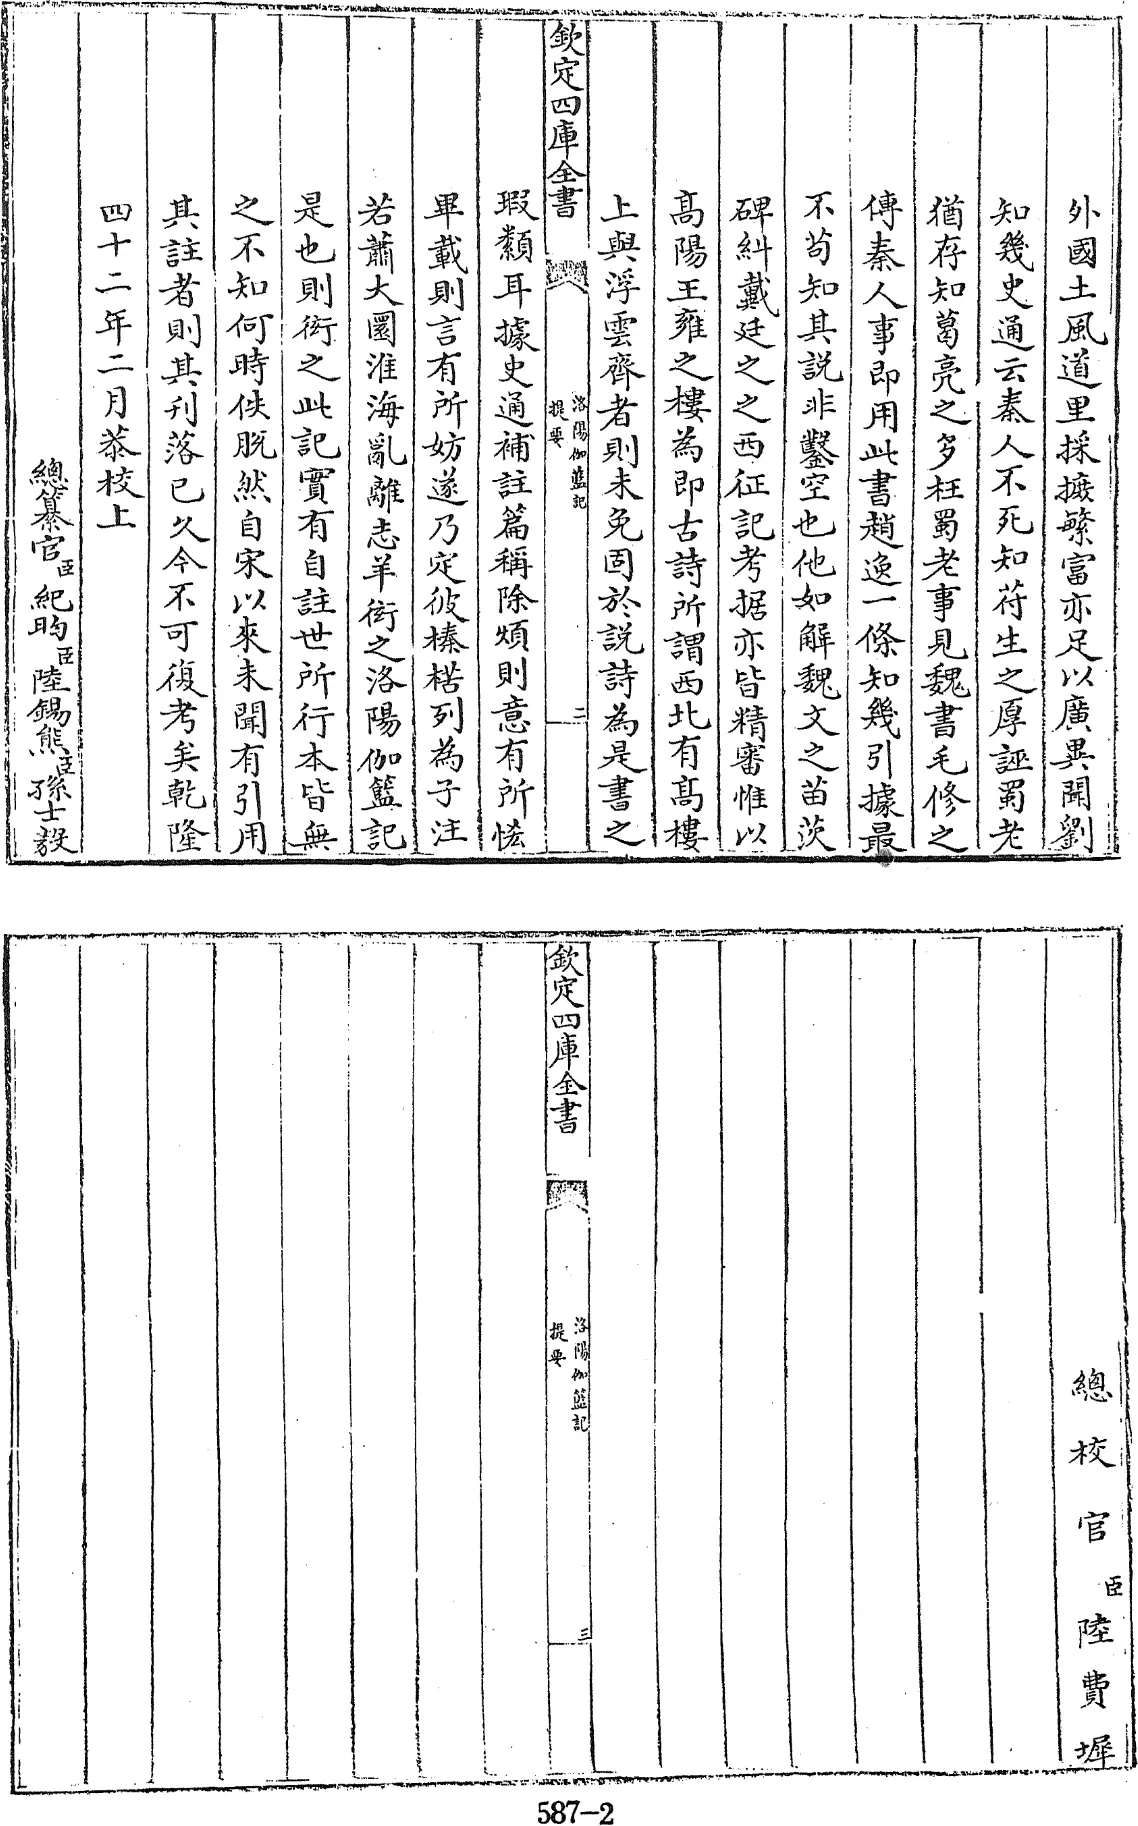 外國土風道里採摭繁富亦足以廣異聞劉
知幾史通云秦人不死知苻生之厚誣蜀老
猶存知葛亮之多枉蜀老事見魏書毛修之
傳秦人事即用此書趙逸一條知幾引據最
不苟知其說非鑿空也他如解魏文之苗茨
碑糾戴延之之西征記考据亦皆精審惟以
高陽王雍之樓為即古詩所謂西北有高樓
上與浮雲齊者則未免固於說詩為是書之
欽定四庫全書
洛陽伽藍記
提要
二
瑕纇耳據史通補註篇稱除煩則意有所恡
畢載則言有所妨遂乃定彼榛楛列為子注
若蕭大圜淮海亂離志羊衒之洛陽伽藍記
是也則衒之此記實有自註世所行本皆無
之不知何時佚脫然自宋以來未聞有引用
其註者則其刋落已久今不可復考矣乾隆
四十二年二月恭校上
總纂官臣紀昀臣陸錫熊臣孫士毅
總校官臣陸費墀
欽定四庫全書
洛陽伽藍記
提要
三
587-2